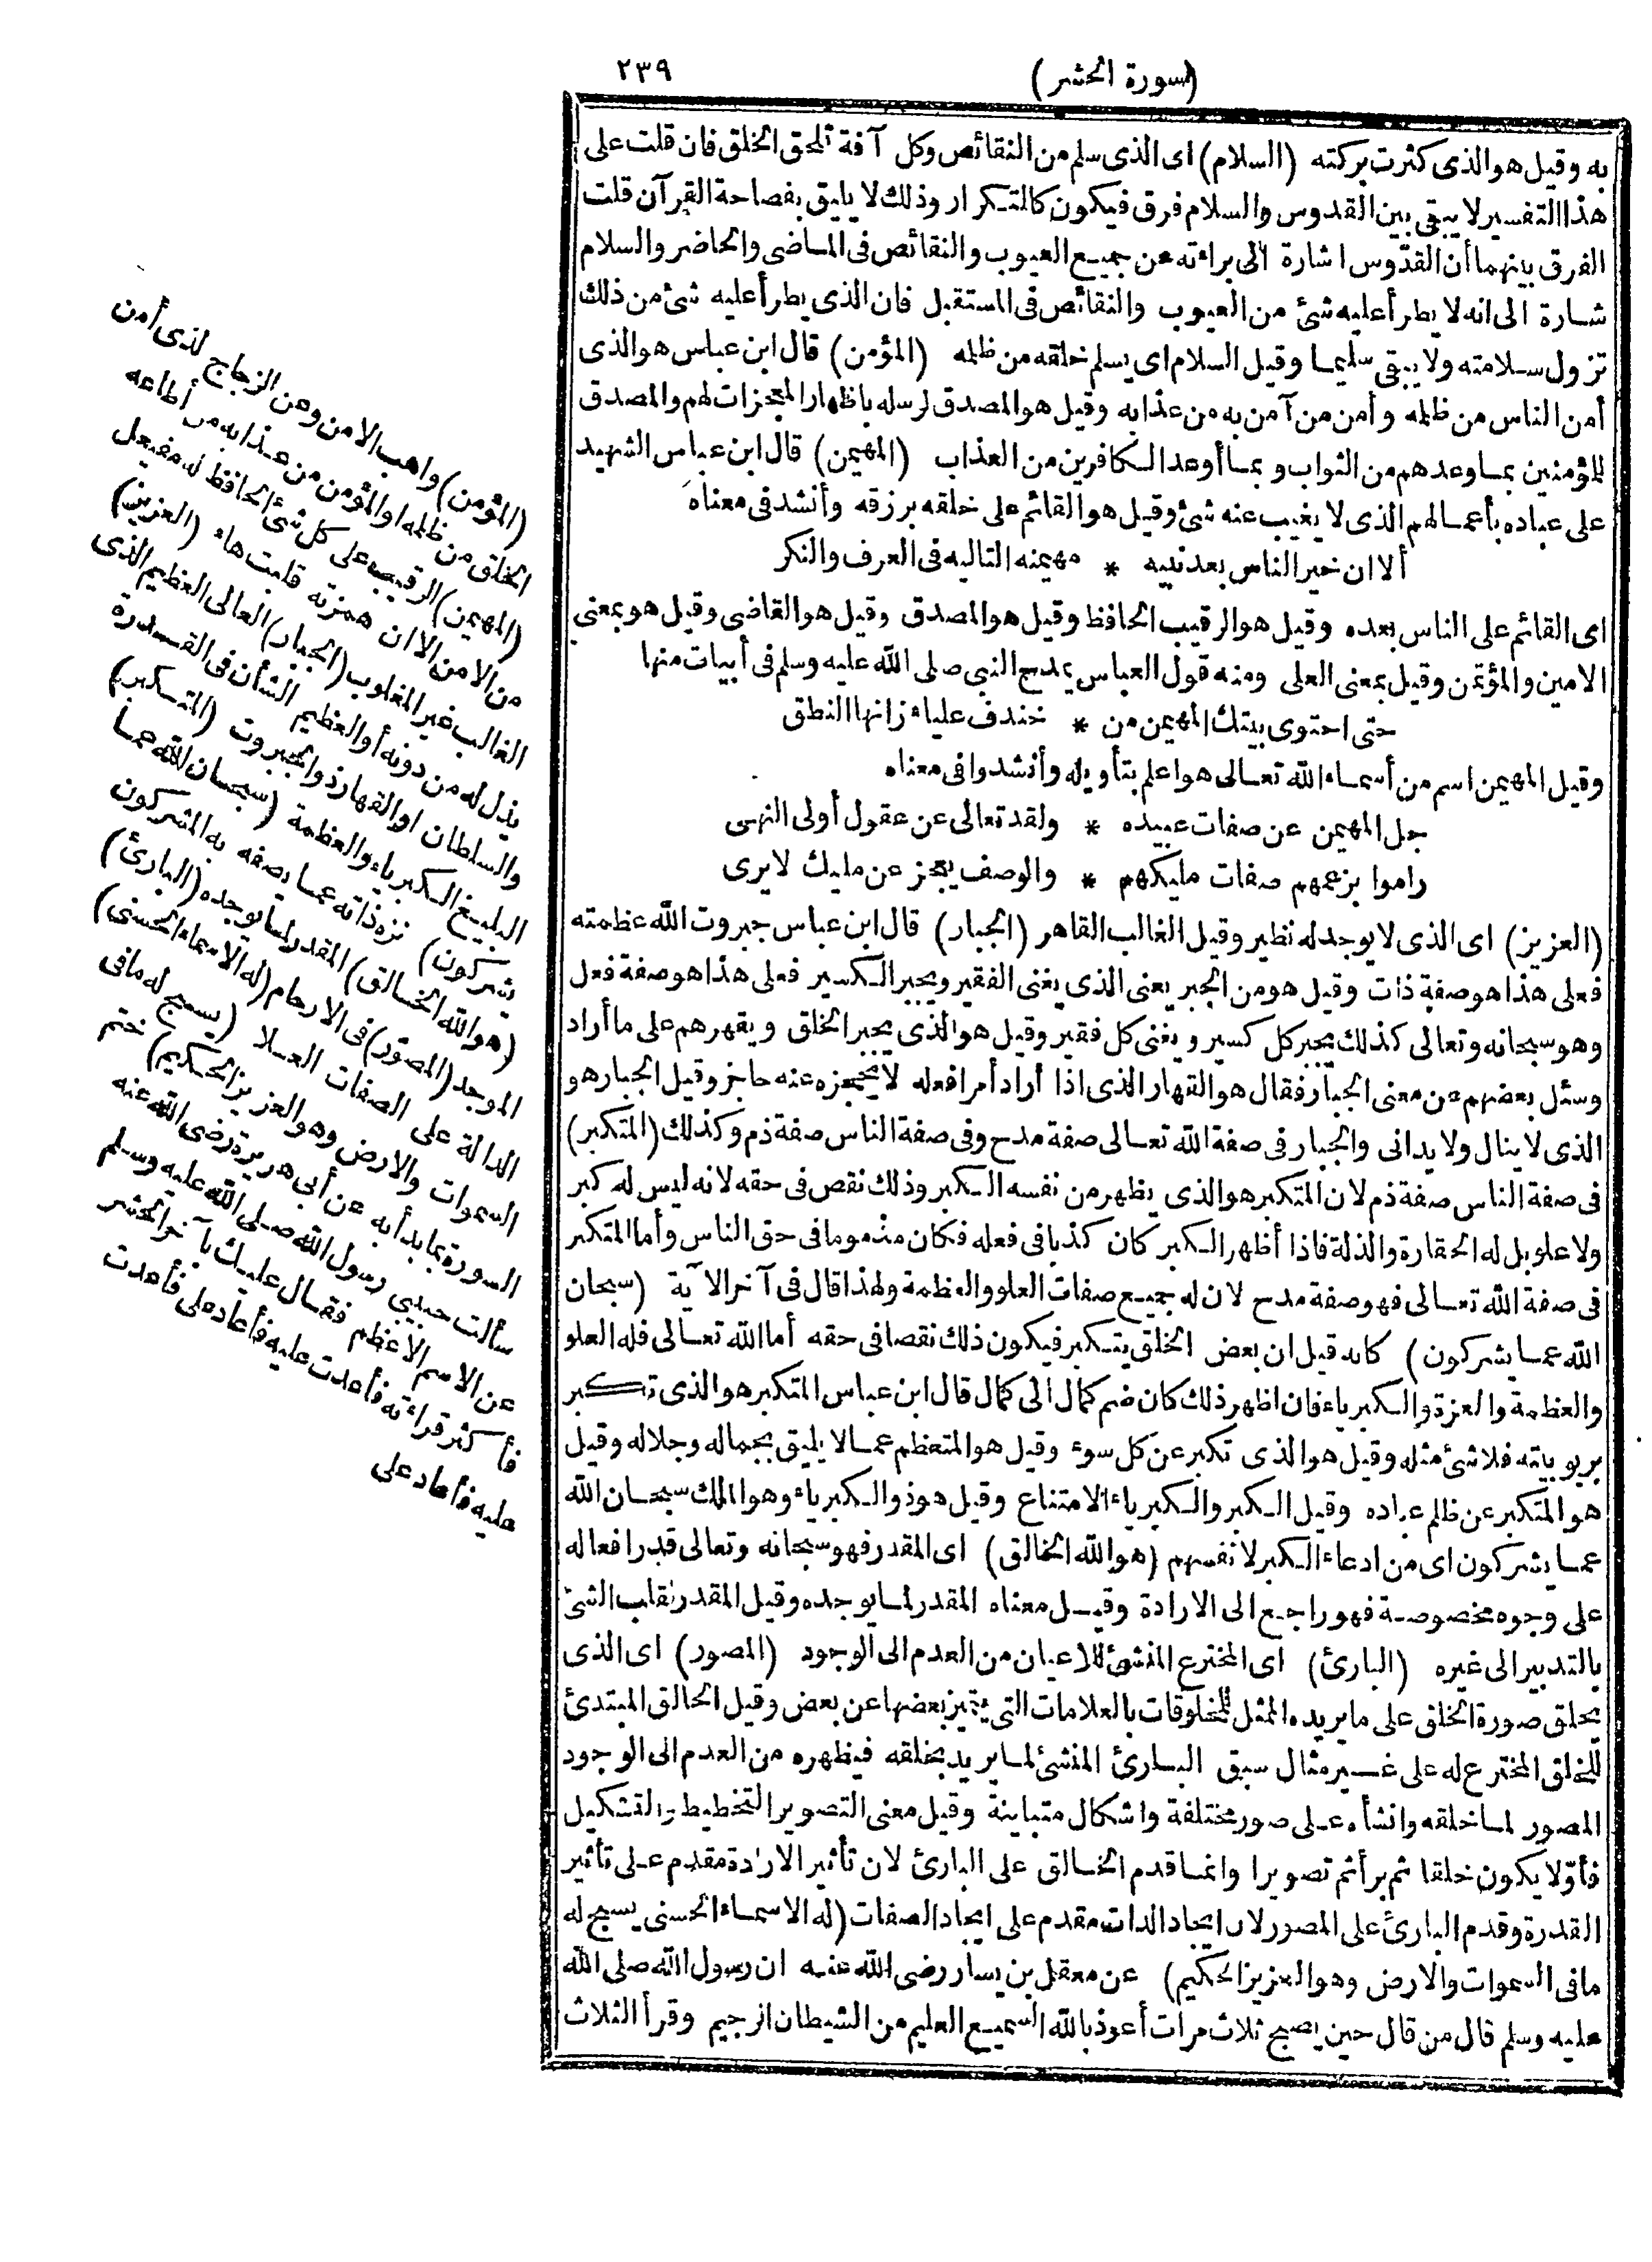 (سورة الحشر)
٢٣٩
به وقيل هو الذى كثرت بركته (السلام) اى الذى سلم من النقائص وكل آفة تلحق الخلق فان قلت على
هذا التفسير لا يبقى بين القدوس والسلام فرق فيكون كالتكرار وذلك لا يليق بفصاحة القرآن قلت
الفرق بينهما أن القدّوس اشارة الى براءته عن جميع العيوب والنقائص فى الماضى والحاضر والسلام
شارة الى انه لا يطرأ عليه شئ من العيوب والنقائص فى المستقبل فان الذى يطرأ عليه شئ من ذلك
تزول سلامته ولا يبقى سليما وقيل السلام اى يسلم خلقه من ظلمه (المؤمن) قال ابن عباس هو الذى
أمن الناس من ظلمه وأمن من آمن به من عذابه وقيل هو المصدق لرسله باظهار المعجزات لهم والمصدق
للمؤمنين بما وعدهم من الثواب وبما أوعد الكافرين من العذاب (المهيمن) قال ابن عباس الشهيد
على عباده بأعمالهم الذى لا يغيب عنه شئ وقيل هو القائم على خلقه برزقه وأنشد فى معناه
ألا ان خير الناس بعد نبيه * مهيمنه التاليه فى العرف والنكر
اى القائم على الناس بعده وقيل هو الرقيب الحافظ وقيل هو المصدق وقيل هو القاضى وقيل هو بمعنى
الامين والمؤتمن وقيل بمعنى العلى ومنه قول العباس يمدح النبى صلى الله عليه وسلم فى أبيات منها
حتى احتوى بيتك المهيمن من * خندف علياء زانها النطق
وقيل المهيمن اسم من أسماء الله تعالى هو اعلم بتأويله وأنشدوا فى معناه
جل المهيمن عن صفات عبيده * ولقد تعالى عن عقول أولى النهى
راموا بزعمهم صفات مليكهم * والوصف يعجز عن مليك لا يرى
(العزيز) اى الذى لا يوجد له نظير وقيل الغالب القاهر (الجبار) قال ابن عباس جبروت الله عظمته
فعلى هذا هو صفة ذات وقيل هو من الجبر يعنى الذى يغنى الفقير ويجبر الكسير فعلى هذا هو صفة فعل
وهو سبحانه وتعالى كذلك يجبر كل كسير ويغنى كل فقير وقيل هو الذى يجبر الخلق ويقهرهم على ما أراد
وسئل بعضهم عن معنى الجبار فقال هو القهار الذى اذا أراد أمرا فعله لا يحجزه عنه حاجز وقيل الجبار هو
الذى لا ينال ولا يدانى والجبار فى صفة الله تعالى صفة مدح وفى صفة الناس صفة ذم وكذلك (المتكبر)
فى صفة الناس صفة ذم لان المتكبر هو الذى يظهر من نفسه الكبر وذلك نقص فى حقه لانه ليس له كبر
ولا علو بل له الحقارة والذلة فاذا أظهر الكبر كان كذبا فى فعله فكان مذموما فى حق الناس وأما المتكبر
فى صفة الله تعالى فهو صفة مدح لان له جميع صفات العلو والعظمة ولهذا قال فى آخر الآية (سبحان
الله عما يشركون) كانه قيل ان بعض الخلق يتكبر فيكون ذلك نقصا فى حقه أما الله تعالى فله العلو
والعظمة والعزة والكبرياء فان اظهر ذلك كان ضم كمال الى كمال قال ابن عباس المتكبر هو الذى تكبر
بربوبيته فلا شئ مثله وقيل هو الذى تكبر عن كل سوء وقيل هو المتعظم عما لا يليق بجماله وجلاله وقيل
هو المتكبر عن ظلم عباده وقيل الكبر والكبرياء الامتناع وقيل هو ذو الكبرياء وهو الملك سبحان الله
عما يشركون اى من ادعاء الكبر لانفسهم (هو الله الخالق) اى المقدر فهو سبحانه وتعالى قدر افعاله
على وجوه مخصوصة فهو راجع الى الارادة وقيل معناه المقدر لما يوجده وقيل المقدر بقلب الشئ
بالتدبير الى غيره (البارئ) اى المخترع المنشئ للاعيان من العدم الى الوجود (المصور) اى الذى
يخلق صورة الخلق على ما يريده الممثل للمخلوقات بالعلامات التى يتميز بعضها عن بعض وقيل الخالق المبتدئ
للخلق المخترع له على غير مثال سبق البارئ المنشئ لما يريد بخلقه فيظهره من العدم الى الوجود
المصور لما خلقه وانشأه على صور مختلفة واشكال متباينة وقيل معنى التصوير التخطيط والتشكيل
فأوّلا يكون خلقا ثم برأ ثم تصويرا وانما قدم الخالق على البارئ لان تأثير الارادة مقدم على تأثير
القدرة وقدم البارئ على المصور لان ايجاد الذات مقدم على ايجاد الصفات (له الاسماء الحسنى يسبح له
ما فى السموات والارض وهو العزيز الحكيم) عن معقل بن يسار رضى الله عنه ان رسول الله صلى الله
عليه وسلم قال من قال حين يصبح ثلاث مرات أعوذ بالله السميع العليم من الشيطان الرجيم وقرأ الثلاث
(المؤمن) واهب الامن وعن الزجاج لذى أمن
الخلق من ظلمه او المؤمن من عذابه من أطاعه
(المهيمن) الرقيب على كل شئ الحافظ له مفيعل
من الامن الا ان همزته قلبت هاء (العزيز)
الغالب غير المغلوب (الجبار) العالى العظيم الذى
يذل له من دونه أو العظيم الشأن فى القدرة
والسلطان او القهار ذو الجبروت (المتكبر)
البليغ الكبرياء والعظمة (سبحان الله عما
يشركون) نزه ذاته عما يصفه به المشركون
(هو الله الخالق) المقدر لما يوجده (البارئ)
الموجد (المصوّر) فى الارحام (له الاسماء الحسنى)
الدالة على الصفات العلا (يسبح له ما فى
السموات والارض وهو العزيز الحكيم) ختم
السورة بما بدأ به عن أبى هريرة رضى الله عنه
سألت حبيبى رسول الله صلى الله عليه وسلم
عن الاسم الاعظم فقال عليك بآخر الحشر
فأكثر قراءته فأعدت عليه فأعاد على فأعدت
عليه فأعاد على